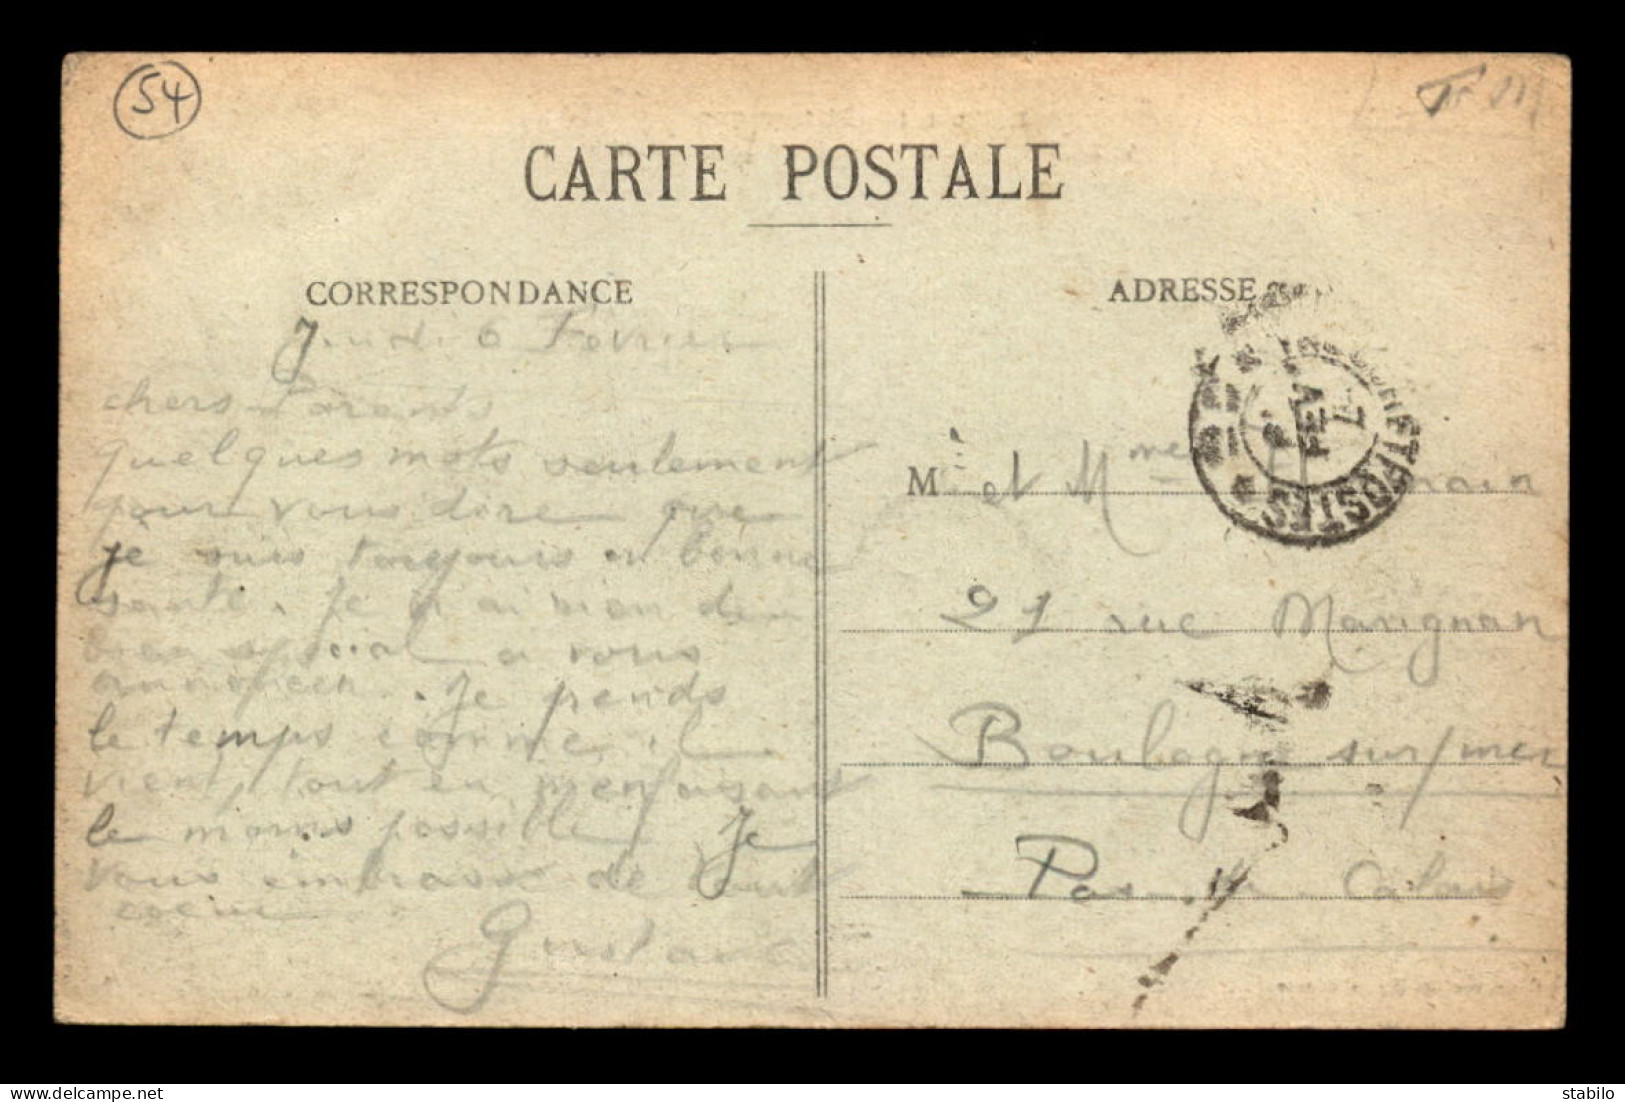 54
CARTE POSTALE
CORRESPONDANCE
Jeudi 6 Février
chers Parents
quelques mots seulement
pour vous dire que
je suis toujours en bonne
santé. Je n'ai rien de
bien spécial a vous
annoncer. Je prends
le temps comme il
vient, tout en m'en faisant
le moins possible. Je
vous embrasse de tout
coeur
Gustave
ADRESSE
TRESOR ET POSTES
FEV
M et Mme
21 rue Marignan
Boulogne sur/mer
Pas de Calais
stabilo